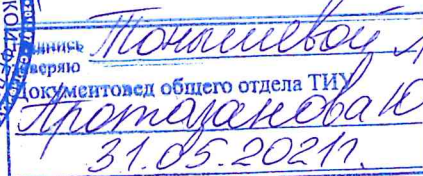 Подпись Тонышевой Л
заверяю
Документовед общего отдела ТИУ
Протазанова Ю
31.05.2021г.